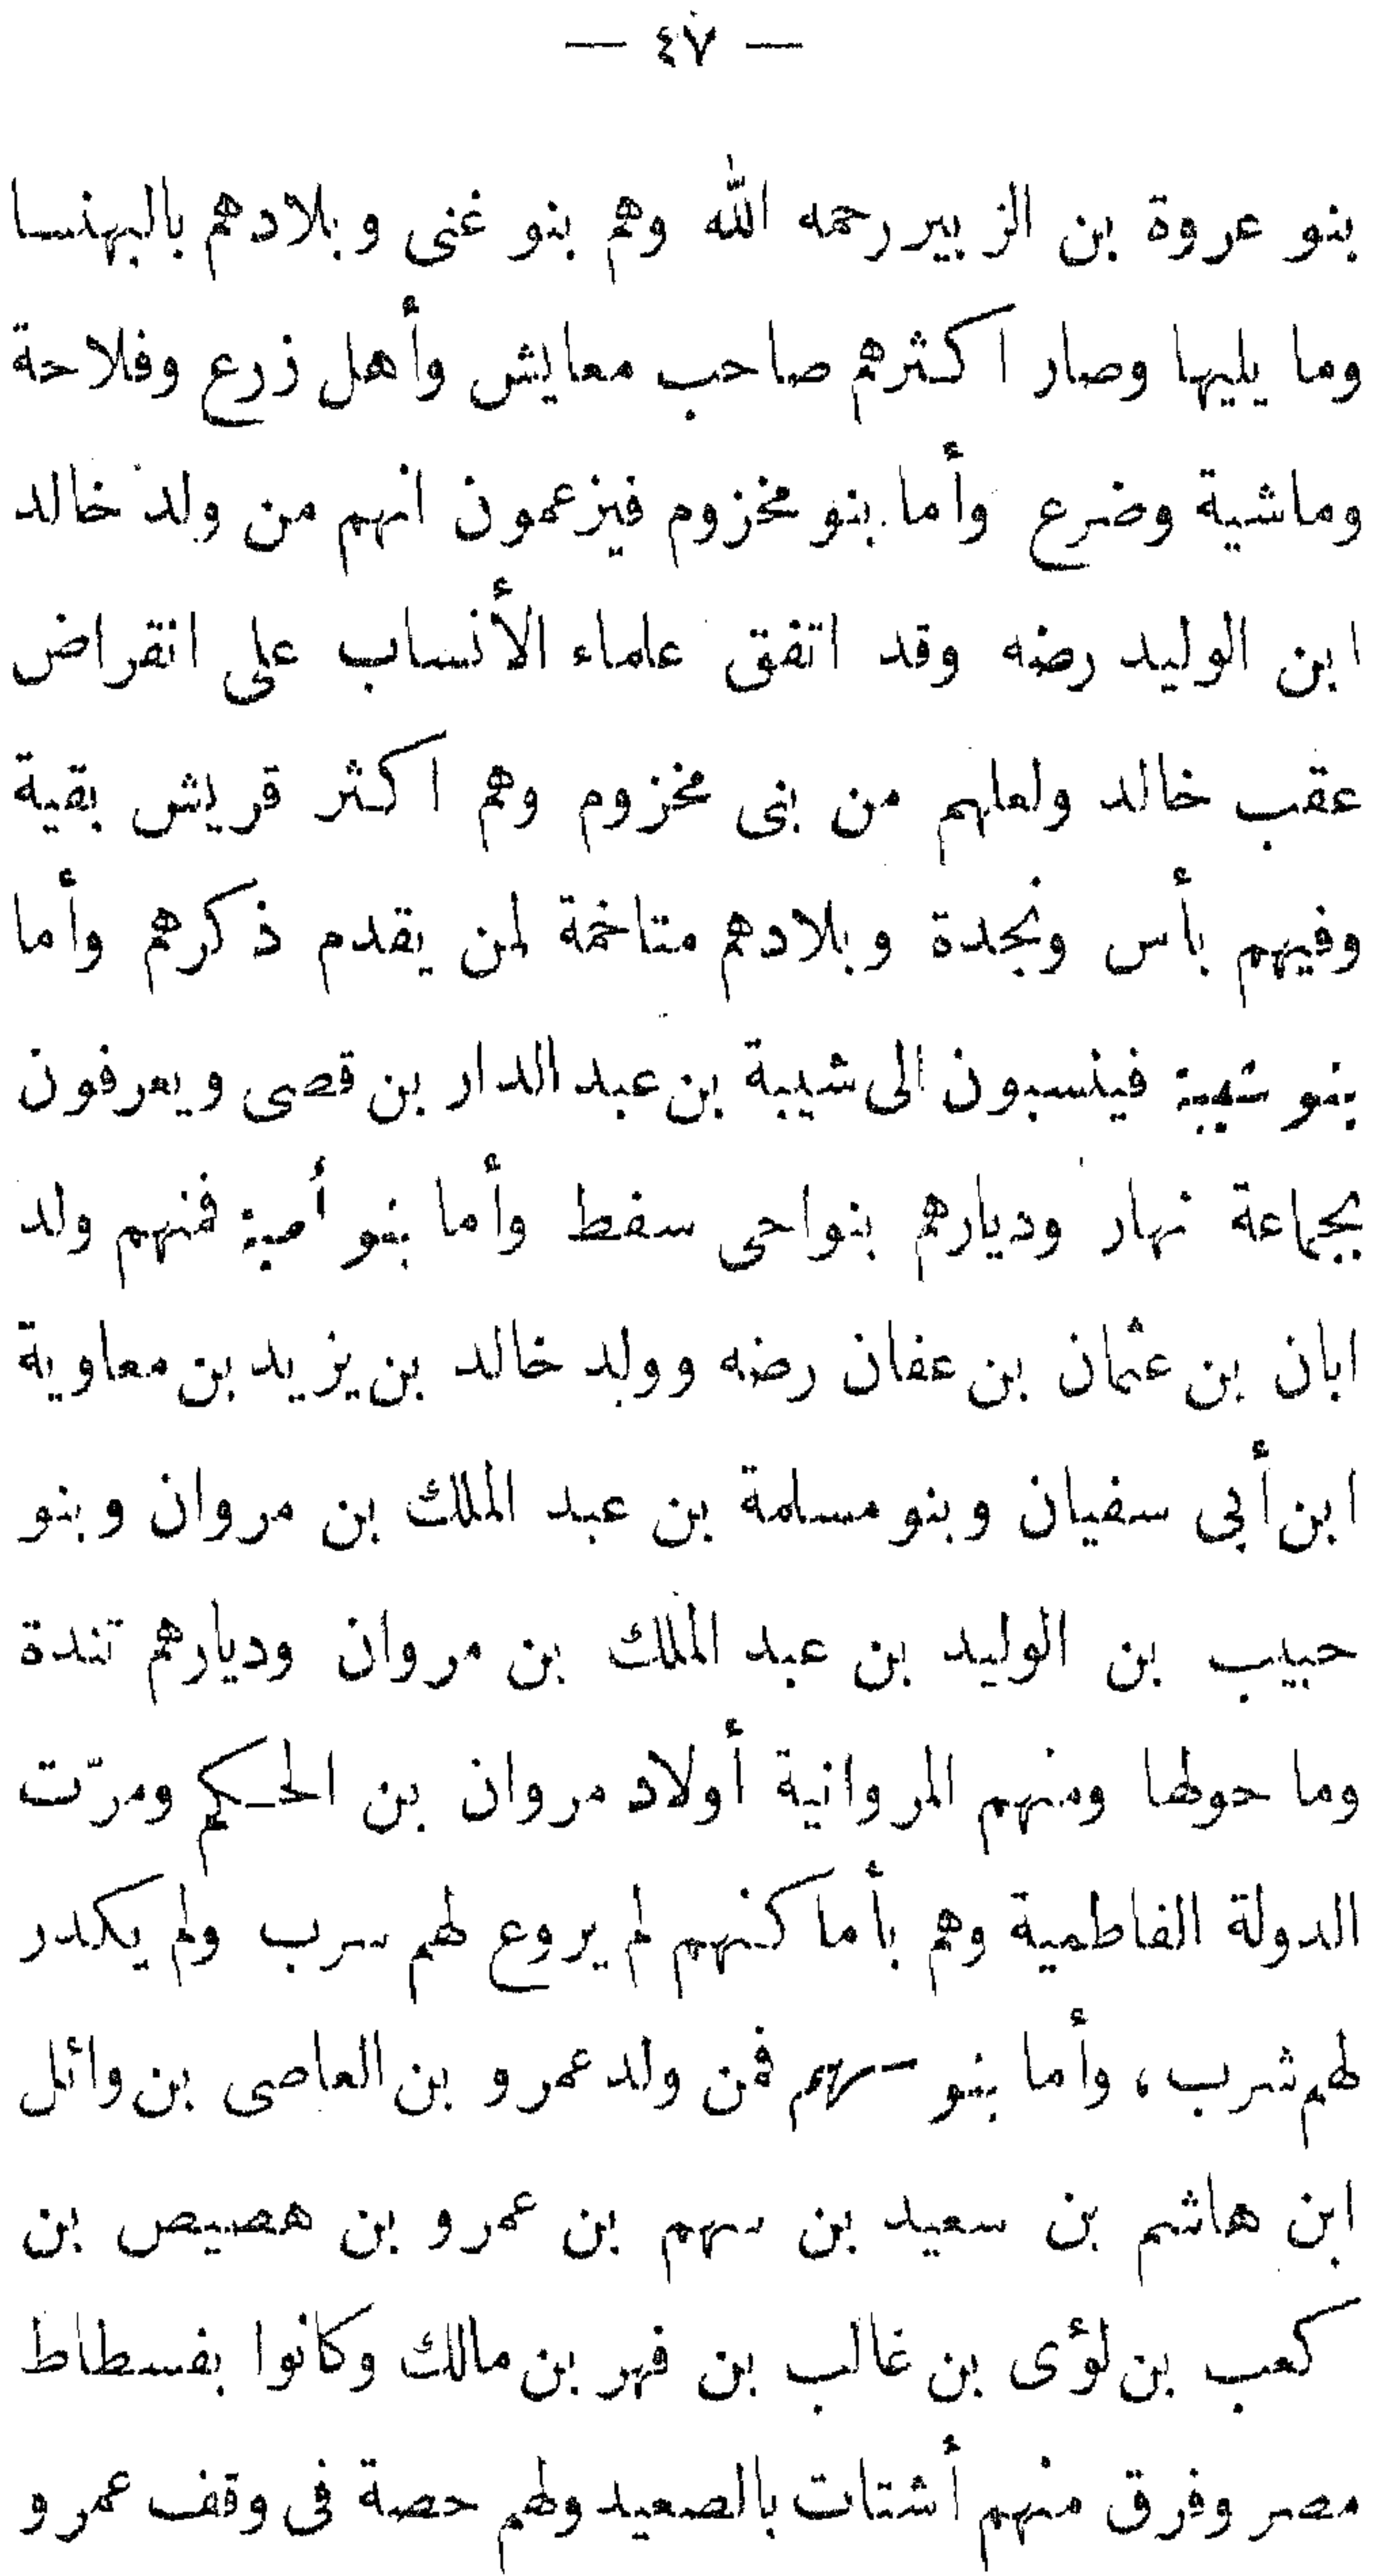 — ٤٧ —
بنو عروة بن الزبير رحمه الله وهم بنو غنى وبلادهم بالبهنسا
وما يليها وصار اكثرهم صاحب معايش وأهل زرع وفلاحة
وماشية وضرع وأما بنو مخزوم فيزعمون انهم من ولد خالد
ابن الوليد رضه وقد اتفق علماء الأنساب على انقراض
عقب خالد ولعلهم من بنى مخزوم وهم اكثر قريش بقية
وفيهم بأس ونجدة وبلادهم متاخمة لمن يقدم ذكرهم وأما
بنو شيبة فينسبون الى شيبة بن عبد الدار بن قصى ويعرفون
بجماعة نهار وديارهم بنواحى سفط وأما بنو أمية فمنهم ولد
ابان بن عثمان بن عفان رضه وولد خالد بن يزيد بن معاوية
ابن أبى سفيان وبنو مسلمة بن عبد الملك بن مروان وبنو
حبيب بن الوليد بن عبد الملك بن مروان وديارهم تندة
وما حولها ومنهم المروانية أولاد مروان بن الحكم ومرّت
الدولة الفاطمية وهم بأماكنهم لم يروع لهم سرب ولم يكدر
لهم شرب، وأما بنو سهم فمن ولد عمرو بن العاصى بن وائل
ابن هاشم بن سعيد بن سهم بن عمرو بن هصيص بن
كعب بن لؤى بن غالب بن فهر بن مالك وكانوا بفسطاط
مصر وفرق منهم أشتات بالصعيد ولهم حصة فى وقف عمرو